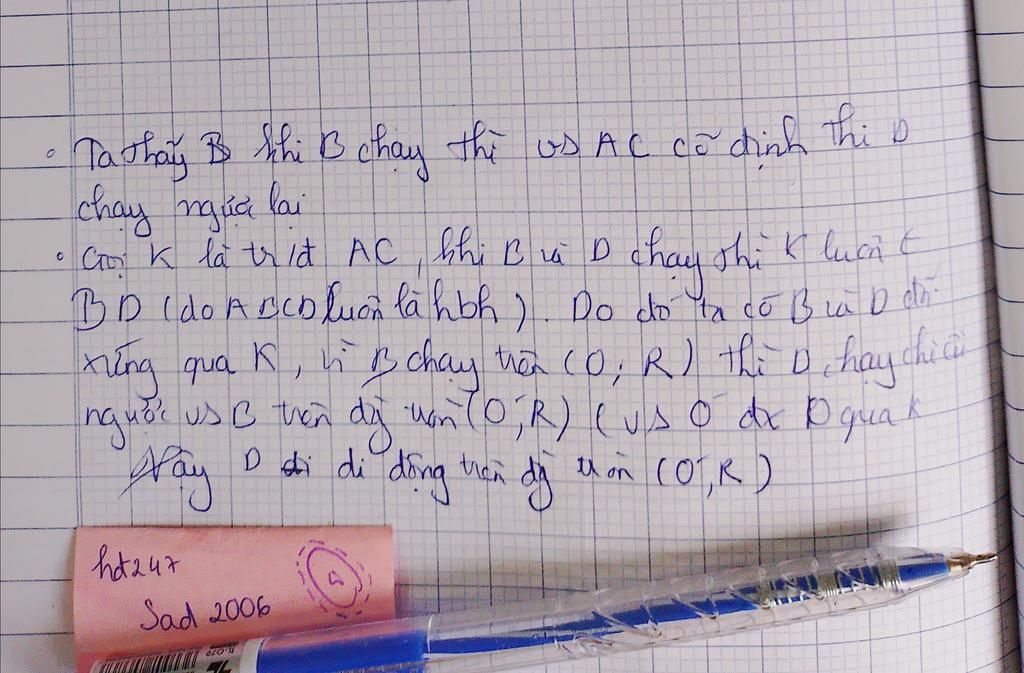 Ta thấy B khi B chạy thì vs AC cố định thì D
chạy ngược lại
Gọi K là tr/đ AC, khi B và D chạy thì K luôn ∈
BD (do ABCD luôn là hbh). Do đó ta có B và D đối
xứng qua K, vì B chạy trên (O; R) thì D chạy chiều
ngược vs B trên đg tròn (O', R) (vs O' đx O qua K
Vậy D di di động trên đg tròn (O', R)
hd247
Sad 2006